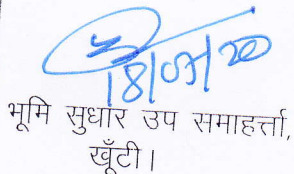 18/07/20
भूमि सुधार उप समाहर्त्ता,
खूँटी।